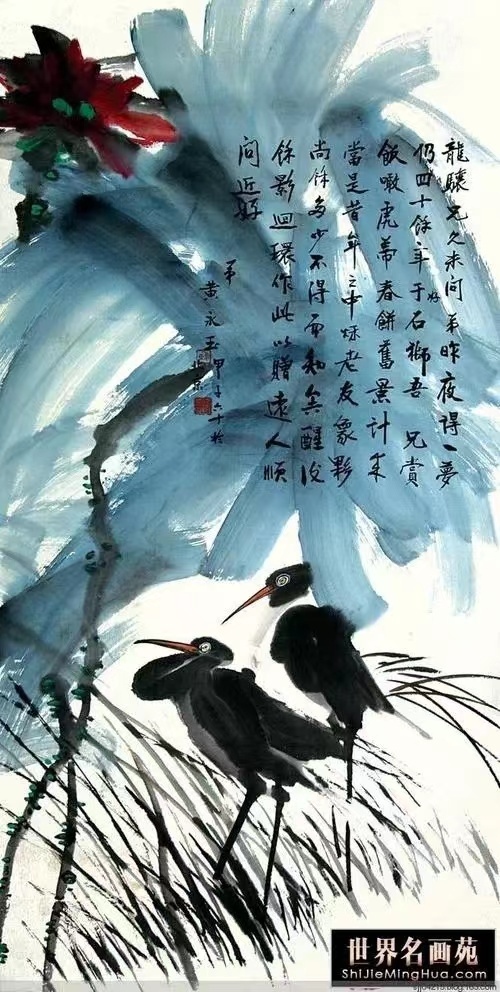 龍驤兄久未問弟昨夜得一夢
仍四十餘年于好石獅吾兄賞
飯噉虎蒂春餅舊景計來
當是昔年之中秋老友象夥
尚餘多少不得而知矣醒後
餘影迴環作此以贈遠人順
問近好
弟
黃永玉甲子六十於
世界名画苑
ShiJieMingHua.com